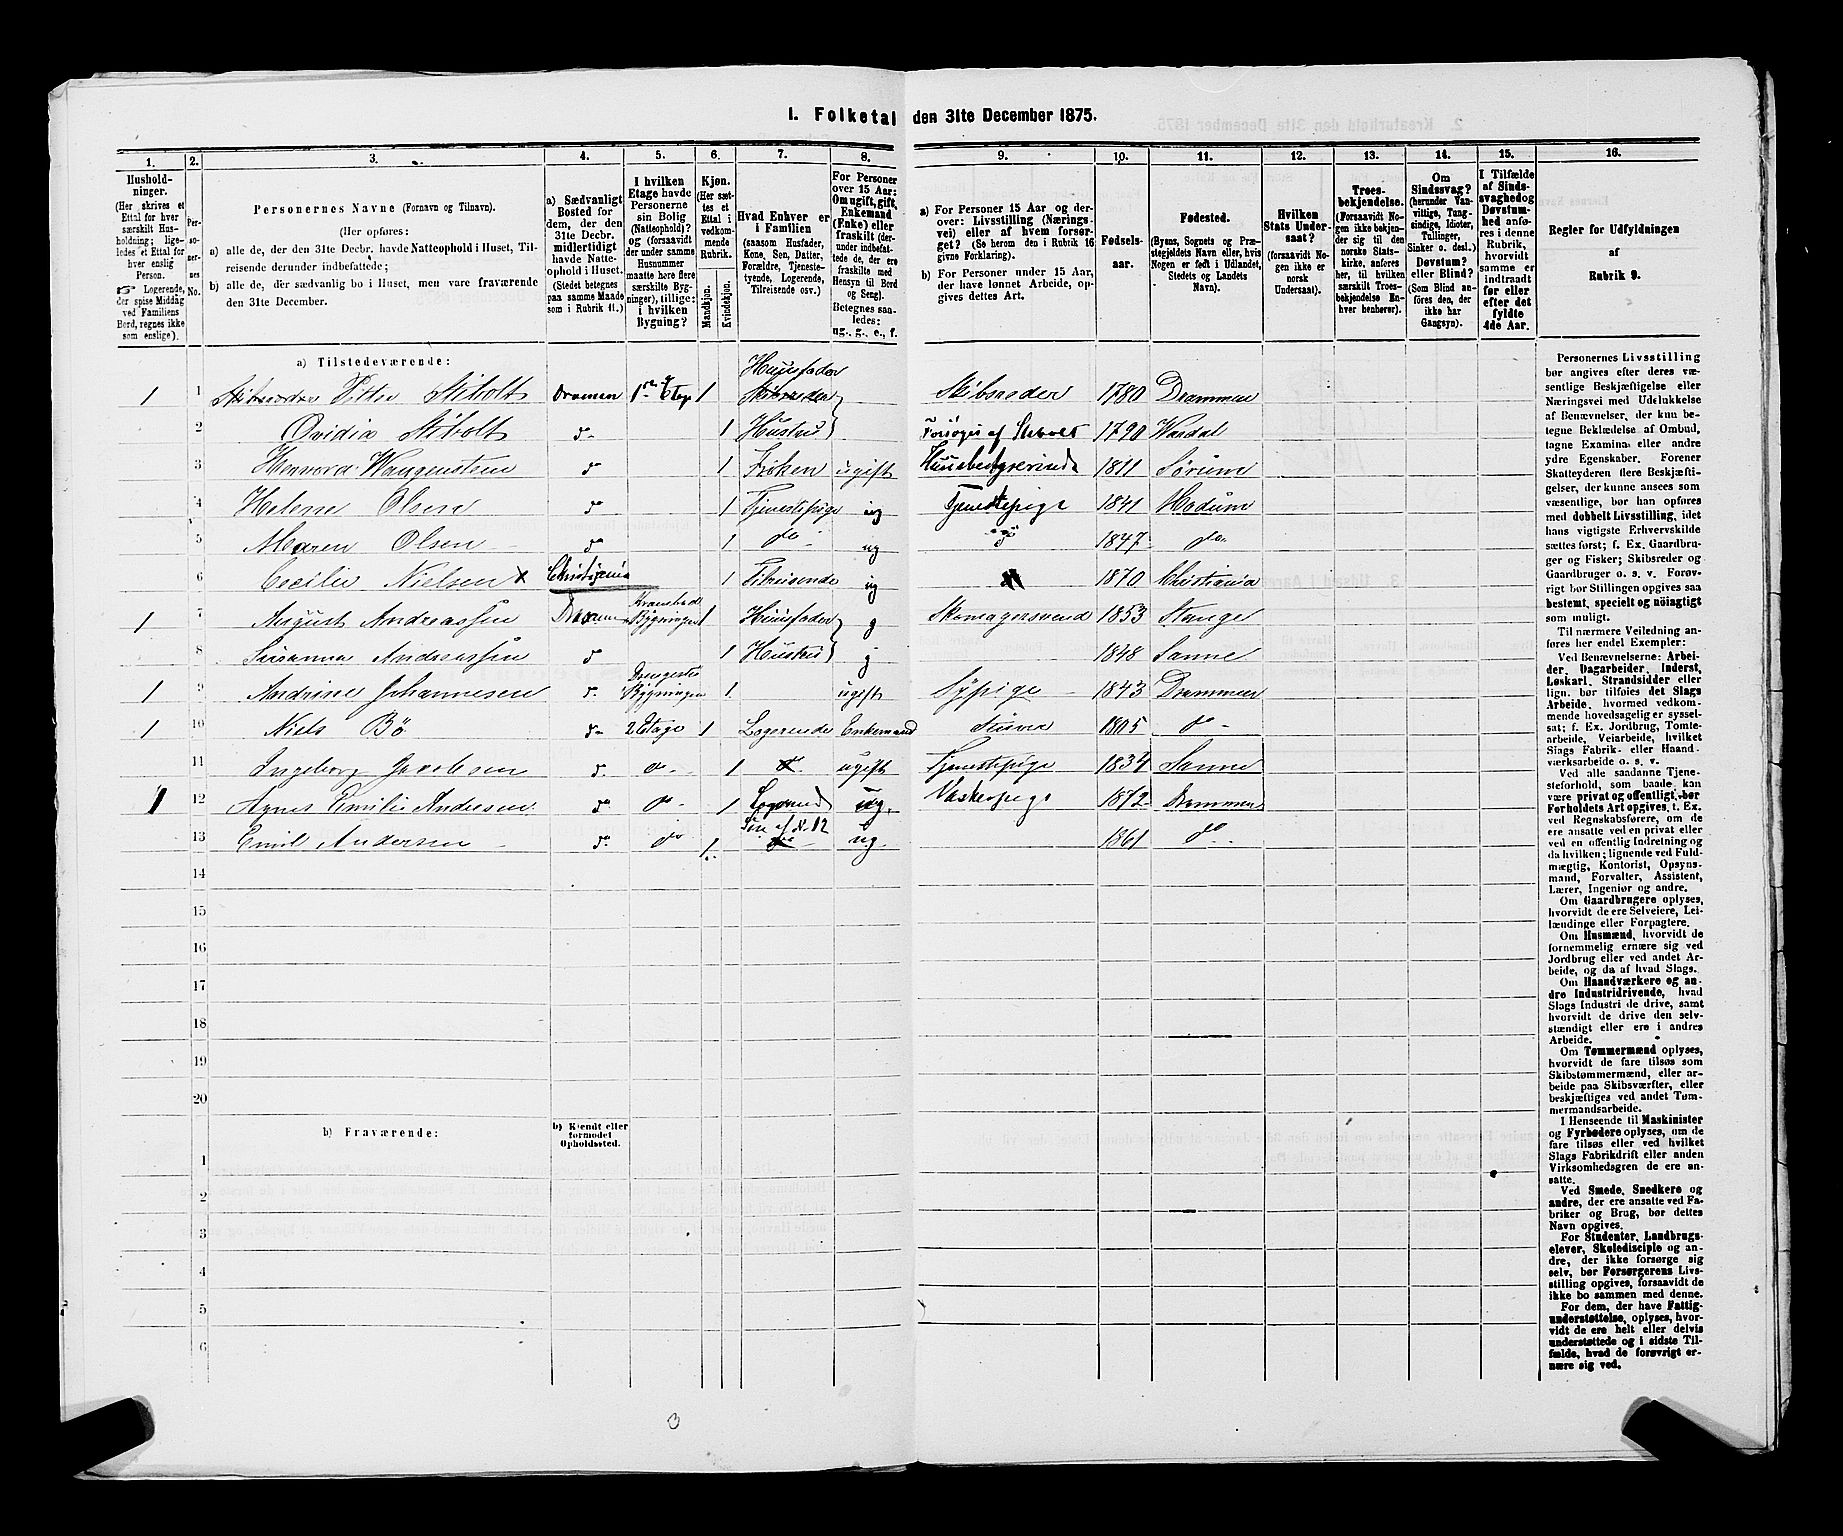 1. Folketal den 31te December 1875.
1. 2. 3. 4. 5. 6. 7. 8. 9. 10. 11. 12. 13. 14. 15. 16.
Hushold-
ninger.
(Her skrives et
Ettal for hver
særskilt Hus-
holdning; lige-
ledes et Ettal for
hver enslig
Person.
☞ Logerende,
der spise Middag
ved Familiens
Bord, regnes ikke
som enslige).
Per-
so-
ner-
nes
No.
Personernes Navne (Fornavn og Tilnavn).
(Her opføres:
a) alle de, der den 31te Decbr. havde Natteophold i Huset, Til-
reisende derunder indbefattede;
b) alle de, der sædvanlig bo i Huset, men vare fraværende
den 31te December.
a) Sædvanligt
Bosted for
dem, der den
31te Decbr.
midlertidigt
havde Natte-
ophold i Huset.
(Stedet betegnes
paa samme Maade
som i Rubrik 11.)
I hvilken
Etage havde
Personerne
sin Bolig
(Natteophold)?
og (forsaavidt
der under samme
Husnummer
maatte høre flere
særskilte Byg-
ninger), tillige:
i hvilken
Bygning?
Kjøn.
(Her sæt-
tes et
Ettal i
vedkom-
mende
Rubrik.
Mandkjøn.
Kvindekjøn.
Hvad Enhver er
i Familien
(saasom Husfader,
Kone, Søn, Datter,
Forældre, Tjeneste-
tyende, Logerende,
Tilreisende osv.)
For Personer
over 15 Aar:
Om ugift, gift,
Enkemand
(Enke) eller
fraskilt (der-
under indbefat-
tede de, der ere
fraskilte med
Hensyn til Bord
og Seng).
Betegnes saa-
ledes:
ug., g., e., f.
a) For Personer 15 Aar og der-
over: Livsstilling (Nærings-
vei) eller af hvem forsør-
get? (Se herom den i Rubrik 16
givne Forklaring).
b) For Personer under 15 Aar,
der have lønnet Arbeide, op-
gives dettes Art.
Fødsels-
aar.
Fødested.
(Byens, Sognets og Præ-
stegjeldets Navn eller, hvis
Nogen er født i Udlandet,
Stedets og Landets
Navn).
Hvilken
Stats Under-
saat?
(forsaavidt No-
gen ikke er
norsk
Undersaat).
Troes-
bekjendelse.
(Forsaavidt No-
gen ikke bekjen-
der sig til den
norske Stats-
kirke, anføres
her, til hvilken
særskilt Troes-
bekjendelse En-
hver henhører).
Om
Sindssvag?
(herunder Van-
vittige, Tung-
sindige, Idioter,
Tullinger,
Sinker o. desl.)
Døvstum?
eller Blind?
(Som Blind an-
føres den, der
ikke har
Gangsyn).
I Tilfælde
af Sinds-
svaghed og
Døvstum-
hed anfø-
res i denne
Rubrik,
hvorvidt
samme er
indtraadt
før eller
efter det
fyldte
4de Aar.
Regler for Udfyldningen
af
Rubrik 9.
a) Tilstedeværende:
Huusfader
1 1 Skibsreder Pitter Stibolt Dramen 1ste Etage 1 Skibsreder Skibsreder 1780 Drammen
2 Ovidia Stibolt do 1 Hustru Forsørges af Stibolt 1790 Wardal
3 Wangensteen do 1 Frøken ugift Huusbestyrerinde 1811 Sørum
4 Helene Olsen do 1 Tjenestepige ug Tjenestepige 1841 Modum
5 Maren Olsen do 1 do ug do 1847 do
6 Cecilie Nielsen x Christiania 1 Tilreisende ug 1870 Christiania
1 7 August Andreassen Drammen Bygningen 1 Huusfader g Skomagersvend 1853 Stange
8 Susanna Andreassen do 1 Hustru g 1848 Sanne
1 9 Andrine Johannesen do Bygningen 1 ugift Sypige 1843 Drammen
1 10 Niels Bö do 2 Etage 1 Logerende Enkemand 1805 do
11 Ingeborg Jacobsen do do 1 do ugift Tjenestepige 1834 Sanne
1 12 Agnes Emilie Andersen do do 1 Logerend ug. Vaskerpige 1872 Drammen
13 Emil Andersen do do 1 Søn af No 12 ug 1861 do
14
15
16
17
18
19
20
b) Fraværende:
b) Kjendt eller
formodet
Opholdssted.
1
2
3
4
5
6
Personernes Livsstilling
bør angives efter deres væ-
sentlige Beskjæftigelse eller
Næringsvei med Udelukkelse
af Benævnelser, der kun be-
tegne Beklædelse af Ombud,
tagne Examina eller andre
ydre Egenskaber. Forener
Skatteyderen flere Beskjæfti-
gelser, der kunne ansees som
væsentlige, bør han opføres
med dobbelt Livsstilling, idet
hans vigtigste Erhvervskilde
sættes først; f. Ex. Gaardbru-
ger og Fisker; Skibsreder og
Gaardbruger o. s. v. Forøv-
rigt bør Stillingen opgives saa
bestemt, specielt og nøiagtigt
som muligt.
Til nærmere Veiledning an-
føres her endel Exempler:
Ved Benævnelserne: Arbei-
der, Dagarbeider, Inderst,
Løskarl, Strandsidder eller
lign. bør tilføies det Slags
Arbeide, hvormed vedkom-
mende hovedsagelig er syssel-
sat; f. Ex. Jordbrug, Tomte-
arbeide, Veiarbeide, hvilket
Slags Fabrik- eller Haand-
værksarbeide o. s. v.
Ved alle saadanne Tjene-
steforhold, som baade kan
være privat og offentligt, bør
Forholdets Art opgives, t. Ex.
ved Regnskabsførere, om de
ere ansatte ved en privat eller
ved en offentlig Indretning og
da hvilken; lignende ved Fuld-
mægtig, Kontorist, Opsyns-
mand, Forvalter, Assistent,
Lærer, Ingeniør og andre.
Om Gaardbrugere oplyses,
hvorvidt de ere Selveiere, Lei-
lændinge eller Forpagtere.
Om Husmænd, hvorvidt de
fornemmelig ernære sig ved
Jordbrug eller ved andet Ar-
beide, og da af hvad Slags.
Om Haandværkere og an-
dre Industridrivende, hvad
Slags Industri de drive, samt
hvorvidt de drive den selv-
stændigt eller ere i andres
Arbeide.
Om Tømmermænd oplyses,
hvorvidt de fare tilsøs som
Skibstømmermænd, eller ar-
beide paa Skibsværfter, eller
beskjæftiges ved andet Tøm-
mermandsarbeide.
I Henseende til Maskinister
og Fyrbødere oplyses, om de
fare tilsøs eller ved hvilket
Slags Fabrikdrift eller anden
Virksomhedsgren de ere an-
satte.
Ved Smede, Snedkere og
andre, der ere ansatte ved Fa-
briker og Brug, bør dettes
Navn opgives.
For Studenter, Landbrugs-
elever, Skoledisciple og an-
dre, der ikke forsørge sig
selv, bør Forsørgerens Livs-
stilling opgives, forsaavidt de
ikke bo sammen med denne.
For dem, der have Fattig-
understøttelse, oplyses, hvor-
vidt de ere helt eller delvis
understøttede og i sidste Til-
fælde, hvad de forøvrigt er-
nære sig ved.
3